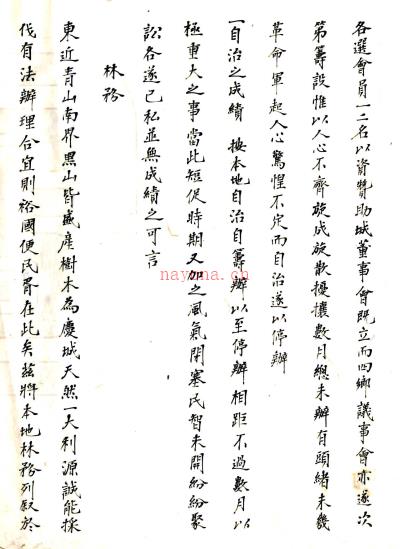 各選會員一二名以資贊助城董事會既立而四鄉議事會亦逐次
第籌設惟以人心不齊旋成旋散擾攘數月總未辦有頭緒未幾
革命軍起人心驚惶不定而自治遂以停辦
一自治之成績 按本地自治自籌辦以至停辦相距不過數月以
極重大之事當此短促時期又加之風氣閉塞民智未開紛紛聚
訟各遂己私並無成績之可言
林務
東近青山南界黑山皆盛産樹木為慶城天然一大利源誠能採
伐有法辦理合宜則裕國便民胥在此矣茲將本地林務列叙於
nayona.cn